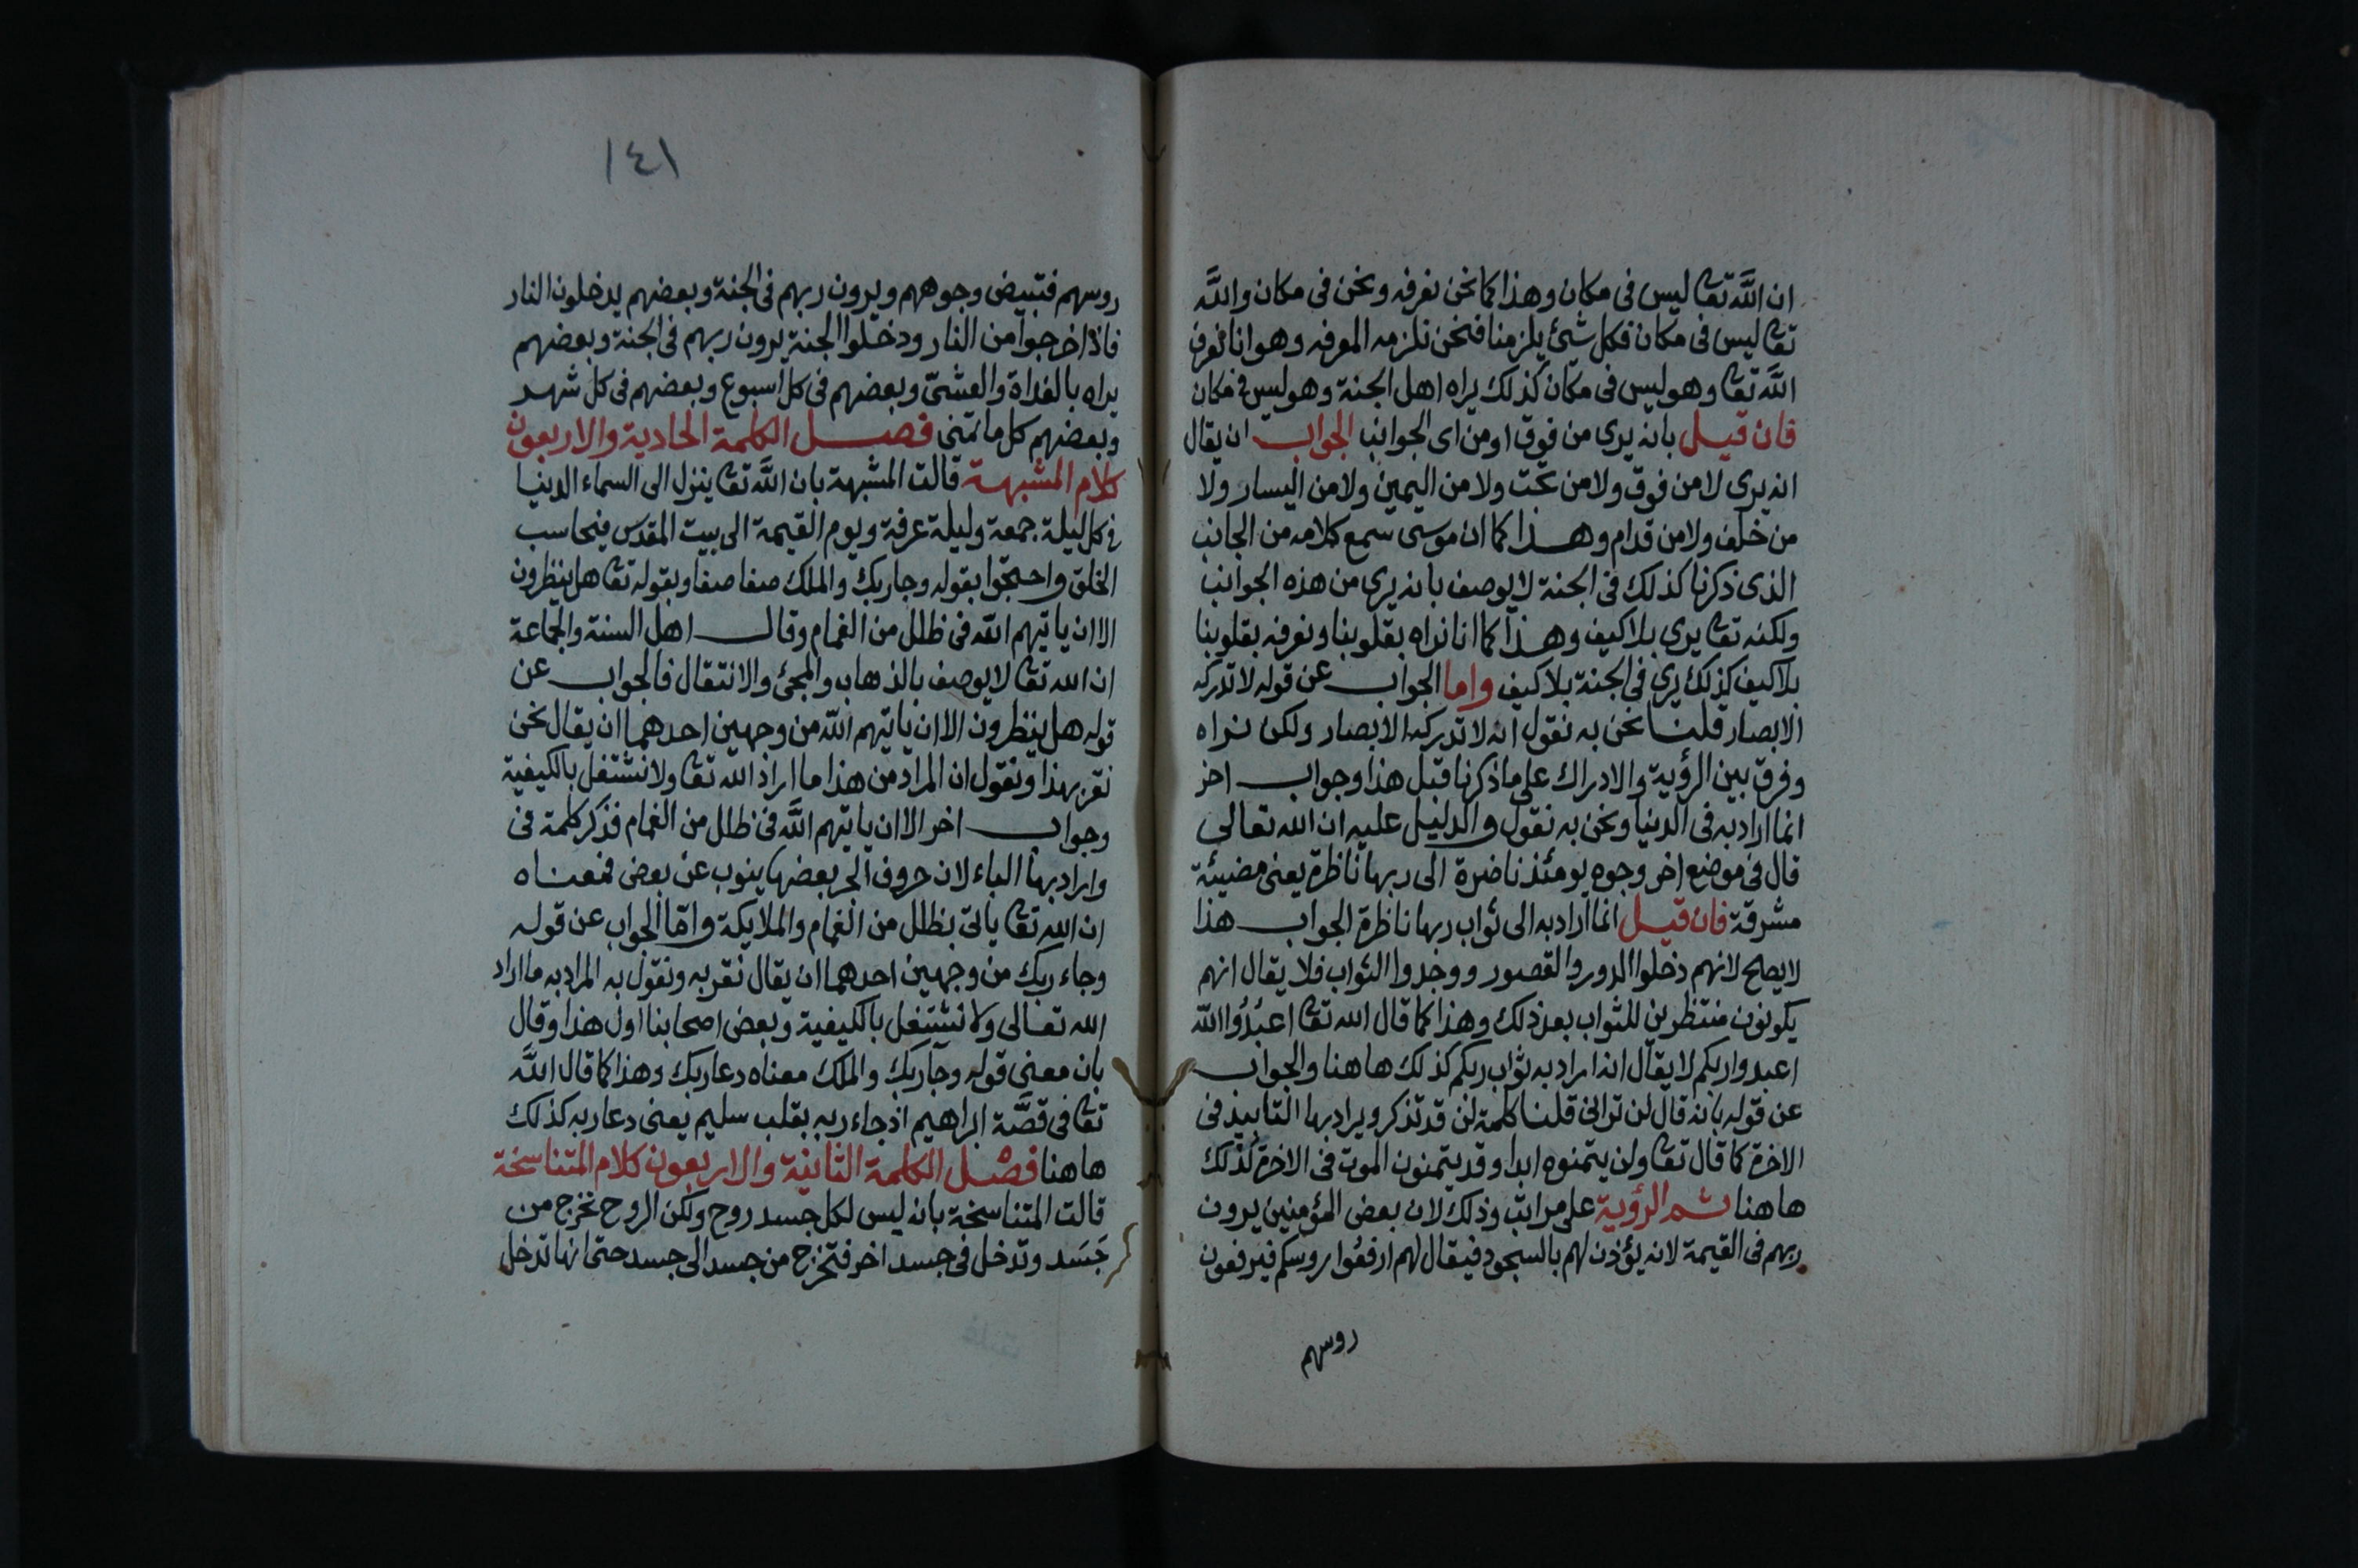 ان الله تعا ليس فى مكان وهذا كما نحن نعرفه ونحن فى مكان والله
تعا ليس فى مكان فكل شئ يلزمنا فنحن نلزمه المعرفه وهو انا نعرف
الله تعا وهو ليس فى مكان كذلك يراه اهل الجنة وهو ليس فى مكان
فان قيل بانه يرى من فوق او من اى الجوانب الجواب ان يقال
انه يرى لا من فوق ولا من تحت ولا من اليمين ولا من اليسار ولا
من خلف ولا من قدام وهذا كما ان موسى سمع كلامه من الجانب
الذى ذكرنا كذلك فى الجنة لا يوصف بانه يرى من هذه الجوانب
ولكنه تعا يرى بلا كيف وهذا كما انا نراه بقلوبنا ونعرفه بقلوبنا
بلا كيف كذلك يرى فى الجنة بلا كيف واما الجواب عن قوله لا تدركه
الابصار قلنا نحن به نقول انه لا تدركه الابصار ولكن نراه
وفرق بين الرؤية والادراك على ما ذكرنا قبل هذا وجواب اخر
انما اراد به فى الدنيا ونحن به نقول والدليل عليه ان الله تعالى
قال فى موضع اخر وجوه يومئذ ناضرة الى ربها ناظرة يعنى مضيئة
مشرقة فان قيل انما اراد به الى ثواب ربها ناظرة الجواب هذا
لا يصلح لانهم دخلوا الدور والقصور ووجدوا الثواب فلا يقال انهم
يكونون منتظرين للثواب بعد ذلك وهذا كما قال الله تعا اعبدوا الله
اعبدوا ربكم لا يقال انه اراد به ثواب ربكم كذلك هاهنا والجواب
عن قوله بانه قال لن ترانى قلنا كلمة لن قد تذكر ويراد بها التابيد فى
الاخرة كما قال تعا ولن يتمنوه ابدا وقد يتمنون الموت فى الاخرة كذلك
هاهنا ثم الرؤية على مراتب وذلك لان بعض المؤمنين يرون
ربهم فى القيمة لانه يؤذن لهم بالسجود فيقال لهم ارفعوا روسكم فيرفعون
روسهم
١٤١
روسهم فتبيض وجوههم ويرون ربهم فى الجنة وبعضهم يدخلون النار
فاذا خرجوا من النار ودخلوا الجنة يرون ربهم فى الجنة وبعضهم
يراه بالغداة والعشىّ وبعضهم فى كل اسبوع وبعضهم فى كل شهر
وبعضهم كل ما تمنى فصل الكلمة الحادية والاربعون
كلام المشبهة قالت المشبهة بان الله تعا ينزل الى السماء الدنيا
فى كل ليلة جمعة وليلة عرفة ويوم القيمة الى بيت المقدس فيحاسب
الخلق واحتجّوا بقوله وجا ربك والملك صفا صفا وبقوله تعا هل ينظرون
الا ان ياتيهم الله فى ظلل من الغمام وقال اهل السنة والجماعة
ان الله تعا لا يوصف بالذهاب والمجئ والانتقال فالجواب عن
قوله هل ينظرون الا ان ياتيهم الله من وجهين احدهما ان يقال نحن
نقر بهذا ونقول ان المراد من هذا ما اراد الله تعا ولا نشتغل بالكيفية
وجواب اخر الا ان ياتيهم الله فى ظلل من الغمام فذكر كلمة فى
واراد بها الباء لان حروف الجر بعضها ينوب عن بعض فمعناه
ان الله تعا ياتى بظلل من الغمام والملايكة وامّا الجواب عن قوله
وجاء ربك من وجهين احدهما ان يقال نقر به ونقول به المراد به ما اراد
الله تعالى ولا نشتغل بالكيفية وبعض اصحابنا اول هذا وقال
بان معنى قوله وجا ربك والملك معناه دعا ربك وهذا كما قال الله
تعا فى قصّة ابراهيم اذ جاء ربه بقلب سليم يعنى دعا ربه كذلك
هاهنا فصل الكلمة الثانية والاربعون كلام المتناسخة
قالت المتناسخة بانه ليس لكل جسد روح ولكن الروح تخرج من
جَسَد وتدخل فى جسد اخر فتخرج من جسد الى جسد حتى انها تدخل